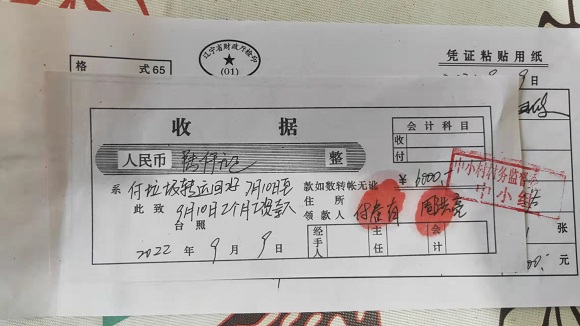 辽宁省财政厅检印
(01)
格 式65
凭证粘贴用纸
9月9日
收 据
会计科目
收
付
人民币 陆仟元 整
¥ 6000-
系 付垃圾转运 7月10日至
9月10日2个月工资款
此致
台照
款如数转帐无讹
住 所
领款人
中小村村务监督
中小
2022年9月9日
经手人
主任
会计
张
元